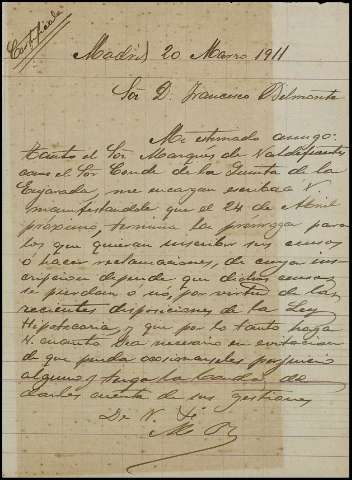 Certificada
Madrid 20 Marzo 1911
Sor D. Francisco Belmonte
Mi estimado amigo:
tanto el Sor Marques de Valdefuentes
como el Sor Conde de la Quinta de la
Enjarada, me encargan escriba a V.
manifestandole que el 24 de Abril
proximo, termina la prórroga para
los que quieran inscribir sus censos
ó hacer reclamaciones, de cuya ins-
cripcion depende que dichos censos
se pierdan ó nó, por virtud de las
recientes disposiciones de la Ley
Hipotecaria, y que por lo tanto haga
V. cuanto sea necesario en evitacion
de que pueda ocasionarseles perjuicio
alguno y tenga la bondad de
darles cuenta de sus gestiones
De V.